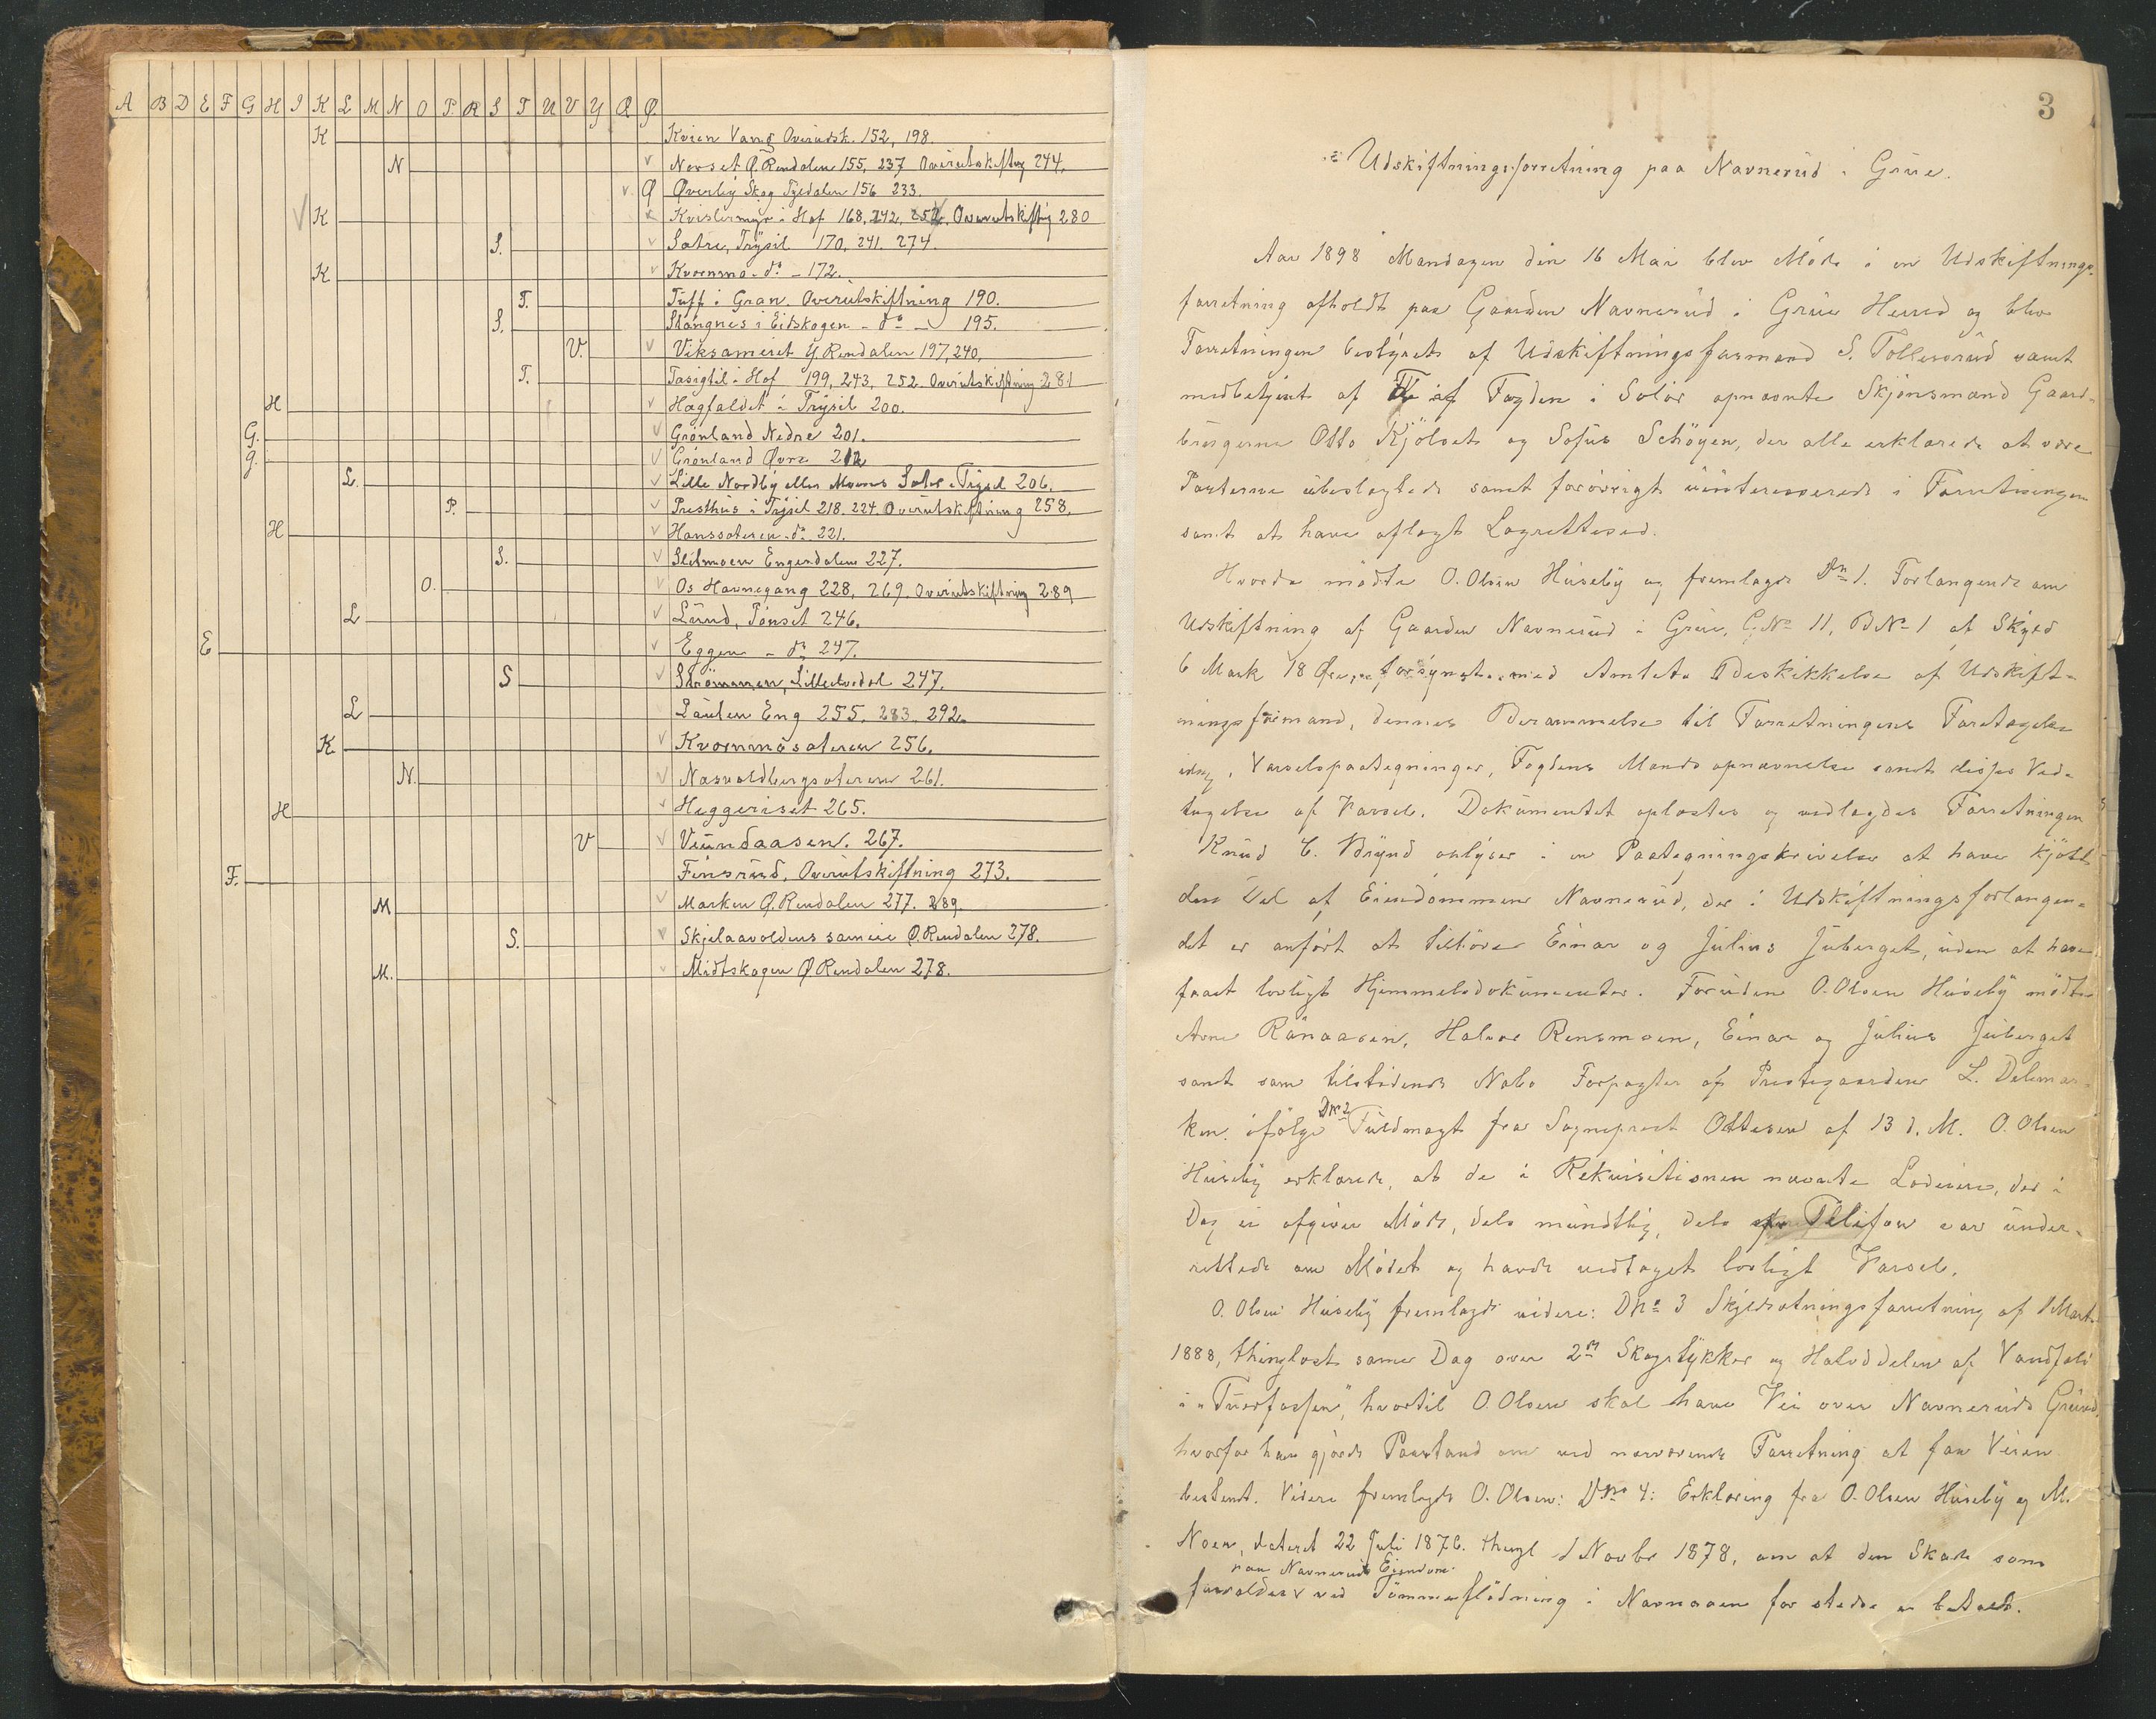 A B D E F G H I K L M N O P. R S T U V Y Æ Ø.
K Kvien Vang Overudsk. 152, 198.
N v Norset Ø. Rendalen 155, 237 Overutskiftng 244.
v. Ø Øverby Skog Tyldalen 156 233.
√ K v Kvislermyr i Hof 168, 242, 252, Overutskiftng 280
S. v Sætre, Trysil 170, 241, 274.
K v Kvernmo - do - 172.
T. Tuff i Gran. Overutskiftning 190.
S. Skangnes i Eidskogen - do - 195.
V. v Viksameiet Y. Rendalen 197, 240,
T. Tasigtil i Hof 199, 243, 252. Overutskiftning 281
H v Hagfaldet i Trysil 200.
G. v Grønland Nedre 201.
G. v Grønland Øvre 212
L. v Lille Nordby eller Sæter i Trysil 206.
P. v Presthus i Trysil 218, 224. Overutskiftning 258.
H v Hanssæteren do 221.
S. v Slitmoen Engerdalen 227.
O. v Os Havnegang 228, 269. Overutskiftning 289
L v Lund, Tønset 246.
E v Eggen - do 247.
S v Strømmen, Lilleelvedal 247.
L Lauten Eng 255, 283. 292.
K. v Kvernmosæteren 256.
N. v Næsvoldbergsæteren 261.
H v Heggeriset 265.
V v Veundaasen. 267.
F. Finsrud, Overutskiftning 273.
M v Marken Ø. Rendalen 277. 289.
S. v Skjelaavoldens sameie Ø. Rendalen 278.
M. v Midtskogen Ø Rendalen 278.
3
Udskiftningsforretning paa Navnerud i Grue.
Aar 1898 Mandagen den 16 Mai blev Møde i en Udskiftnings-
forretning afholdt paa Gaarden Navnerud i Grue Herred og blev
Forretningen bestyret af Udskiftningsformand S. Tollersrud samt
medbetjent af af Fogden i Solør opnævnte Skjønsmænd Gaard-
brugerne Otto Kjølset og Sofus Schøyen, der alle erklærede at være
Parterne ubeslægtede samt forøvrigt uinteresserede i Forretningen
samt at have aflagt Lagrettesed.
Hvorda mødte O. Olsen Huseby og fremlagde Dn 1. Forlangende om
Udskiftning af Gaarden Navnerud i Grue, GNo 11, BNo 1 af Skyld
6 Mark 18 Øre, forsynet med Amtets Beskikkelse af Udskift-
ningsformand, dennes Berammelse til Forretningens Foretagelse
idag, Varselspaategninger, Fogdens Mandsopnævnelse samt disses Ved-
tagelse af Varsel. Dokumentet oplæstes og vedlægdes Forretningen
Knud C. Brynd oplyser i en Paategningskrivelse at have kjøbt
den Del af Eiendommen Navnerud, der i Udskiftningsforlangen-
det er anført at tilhøre Einar og Julius Juberget, uden at have
faaet lovligt Hjemmelsdokumenter. Foruden O. Olsen Huseby mødte
Arne Rønaasen, Halvor Rensmoen, Einar og Julius Juberget
samt som tilstødende Nabo Forpagter af Prestegaarden L. Delemar-
ken, ifølge Dn 2 Fuldmagt fra Sogneprest Ottesen af 13 d. M. O. Olsen
Huseby erklærede, at de i Rekvisitionen nævnte Lodeiere, der i
Dag ei afgiver Møde, dels mundtlig, dels Telefon var under-
rettede om Mødet og havde vedtaget lovligt Varsel.
O. Olsen Huseby fremlagde videre: Dno 3 Skjelsætningsforretning af 1 Marts
1888, thinglæst samme Dag over 2de Skogstykker og Halvddelen af Vandfald
i "Tuerfossen", hvortil O. Olsen skal have Vei over Navneruds Grund,
hvorfor han gjorde Paastand om ved nærværende Forretning at faa Veien
bestemt. Videre fremlagde O. Olsen: Dno 4: Erklæring fra O. Olsen Huseby og M.
Noer, dateret 22 Juli 1876. thingl 1 Novbr 1878, om at den Skade som
paa Navneruds Eiendom
forvoldes v ved Tømmerflødning i Navnaaen for stedse er betalt.